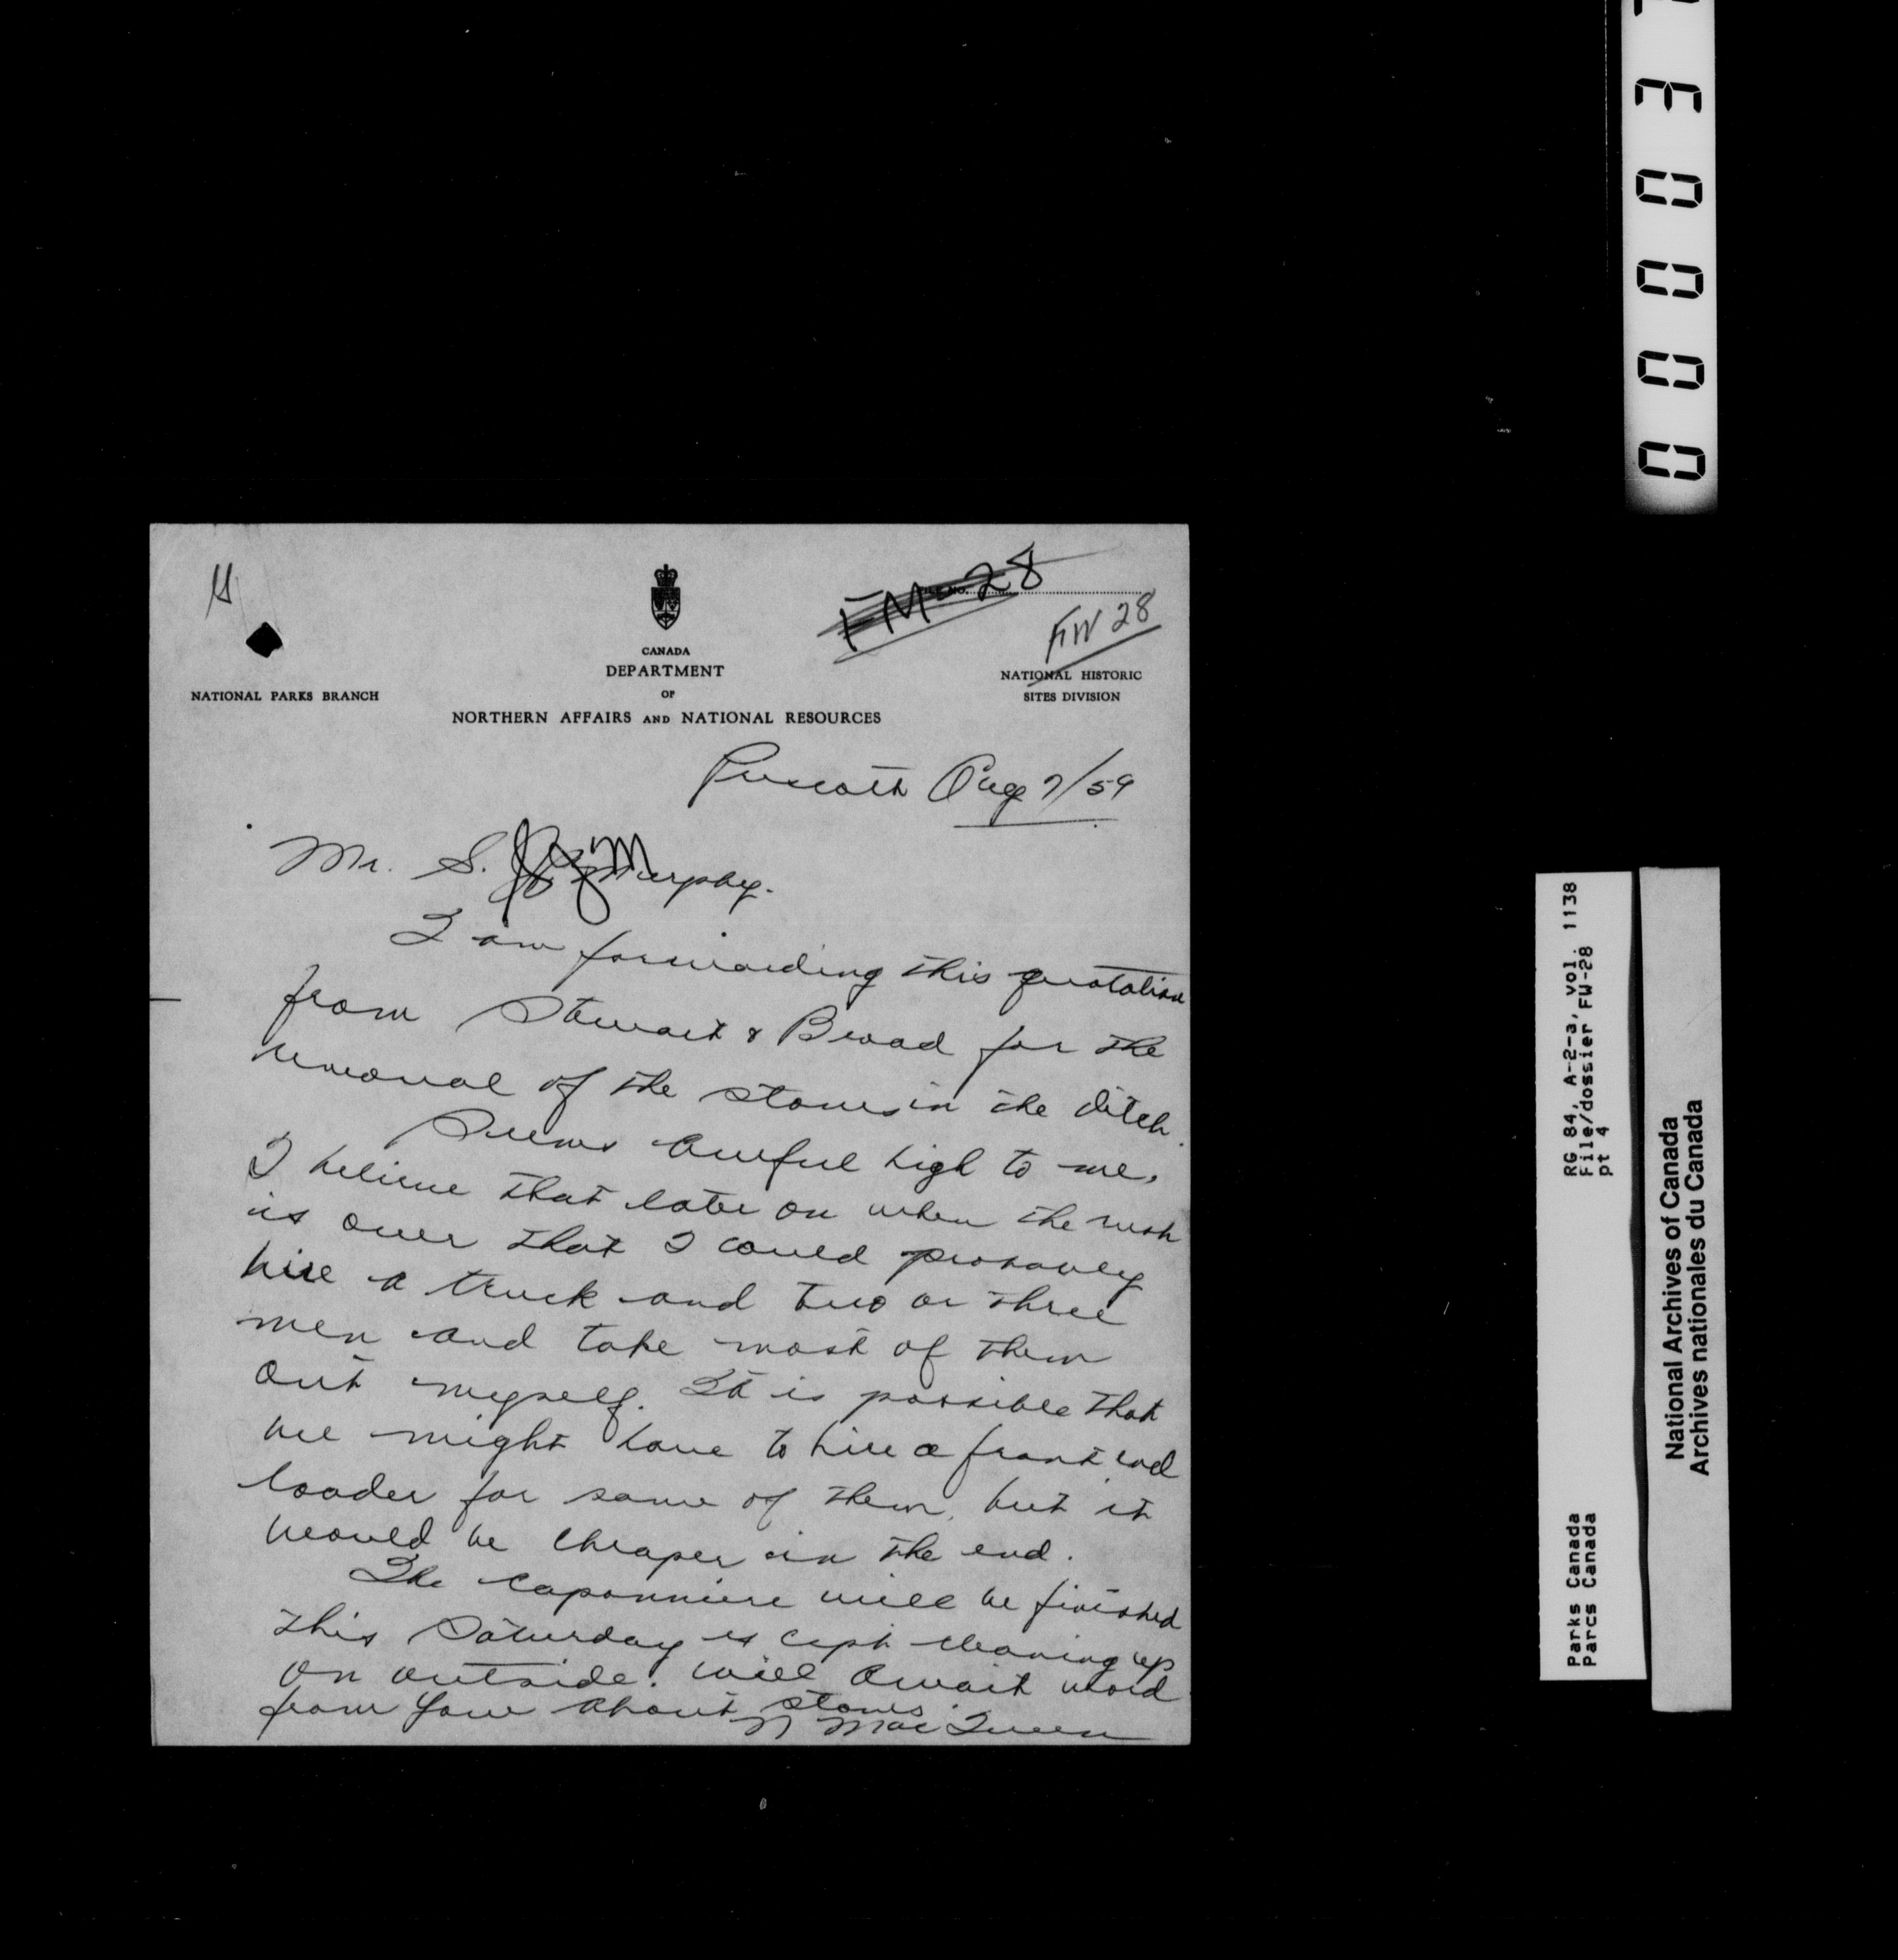 CANADA
DEPARTMENT
OF
NORTHERN AFFAIRS AND NATIONAL RESOURCES
NATIONAL PARKS BRANCH
FILE NO.
FM-28
FW 28
NATIONAL HISTORIC
SITES DIVISION
Prescott Aug 7/59
Mr. S. Murphy.
I am forwarding this quotation
from Stewart & Broad for the
removal of the stones in the ditch.
Seems awful high to me.
I believe that later on when the rush
is over that I could probably
hire a truck and two or three
men and take most of them
out myself. It is possible that
we might have to hire a front end
loader for some of them, but it
would be cheaper in the end.
The caponniere will be finished
this Saturday except cleaning up
on outside. will await word
from you about stones.
N MacQueen
00003
RG 84, A-2-a, vol. 1138
File/dossier FW-28
pt 4
Parks Canada
Parcs Canada
National Archives of Canada
Archives nationales du Canada